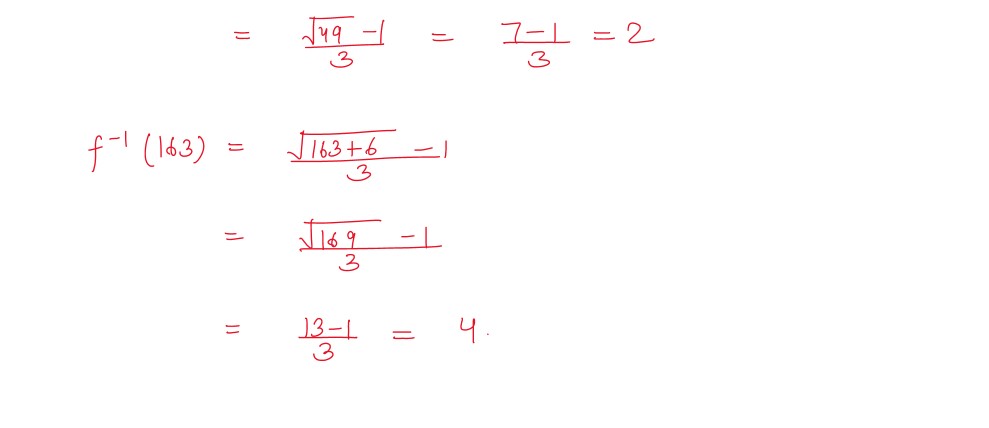 = (√49 - 1)/3 = (7-1)/3 = 2
f⁻¹(163) = (√(163+6) - 1)/3
= (√169 - 1)/3
= (13-1)/3 = 4.